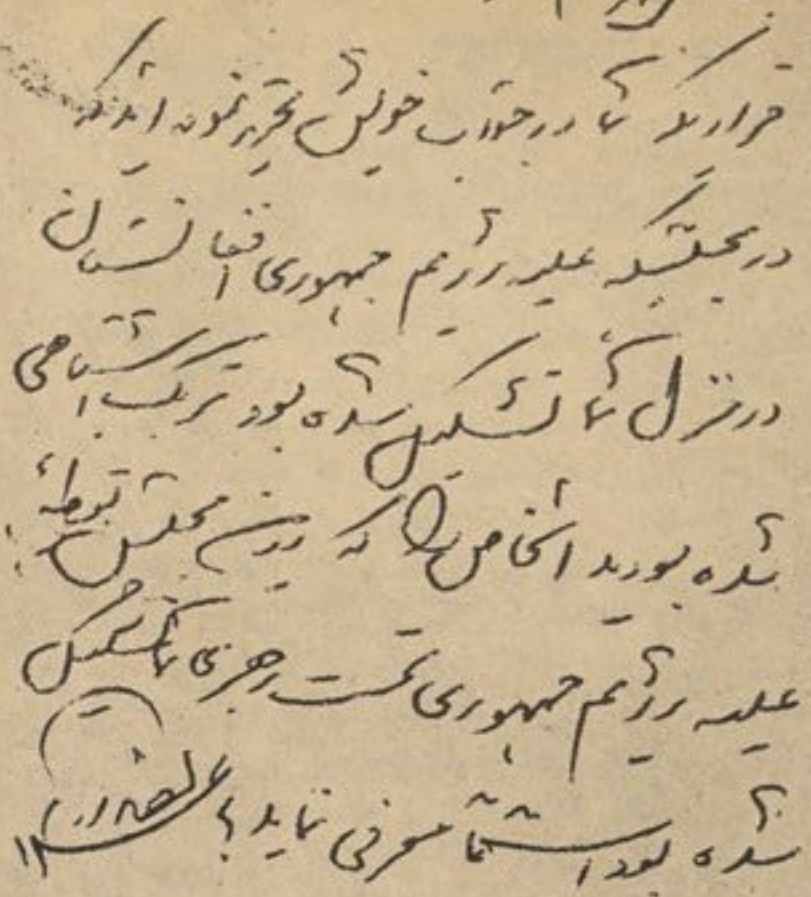 قراریکه شما در جواب خویش تحریر نموده اید که
در مجلسیکه علیه رژیم جمهوری افغانستان
در منزل شما تشکیل شده بود ترک اشتباهی
شده بودید اشخاص را که درین مجلس توطئه
علیه رژیم جمهوری تحت رهبری شما تشکیل
شده بود معرفی نماید؟